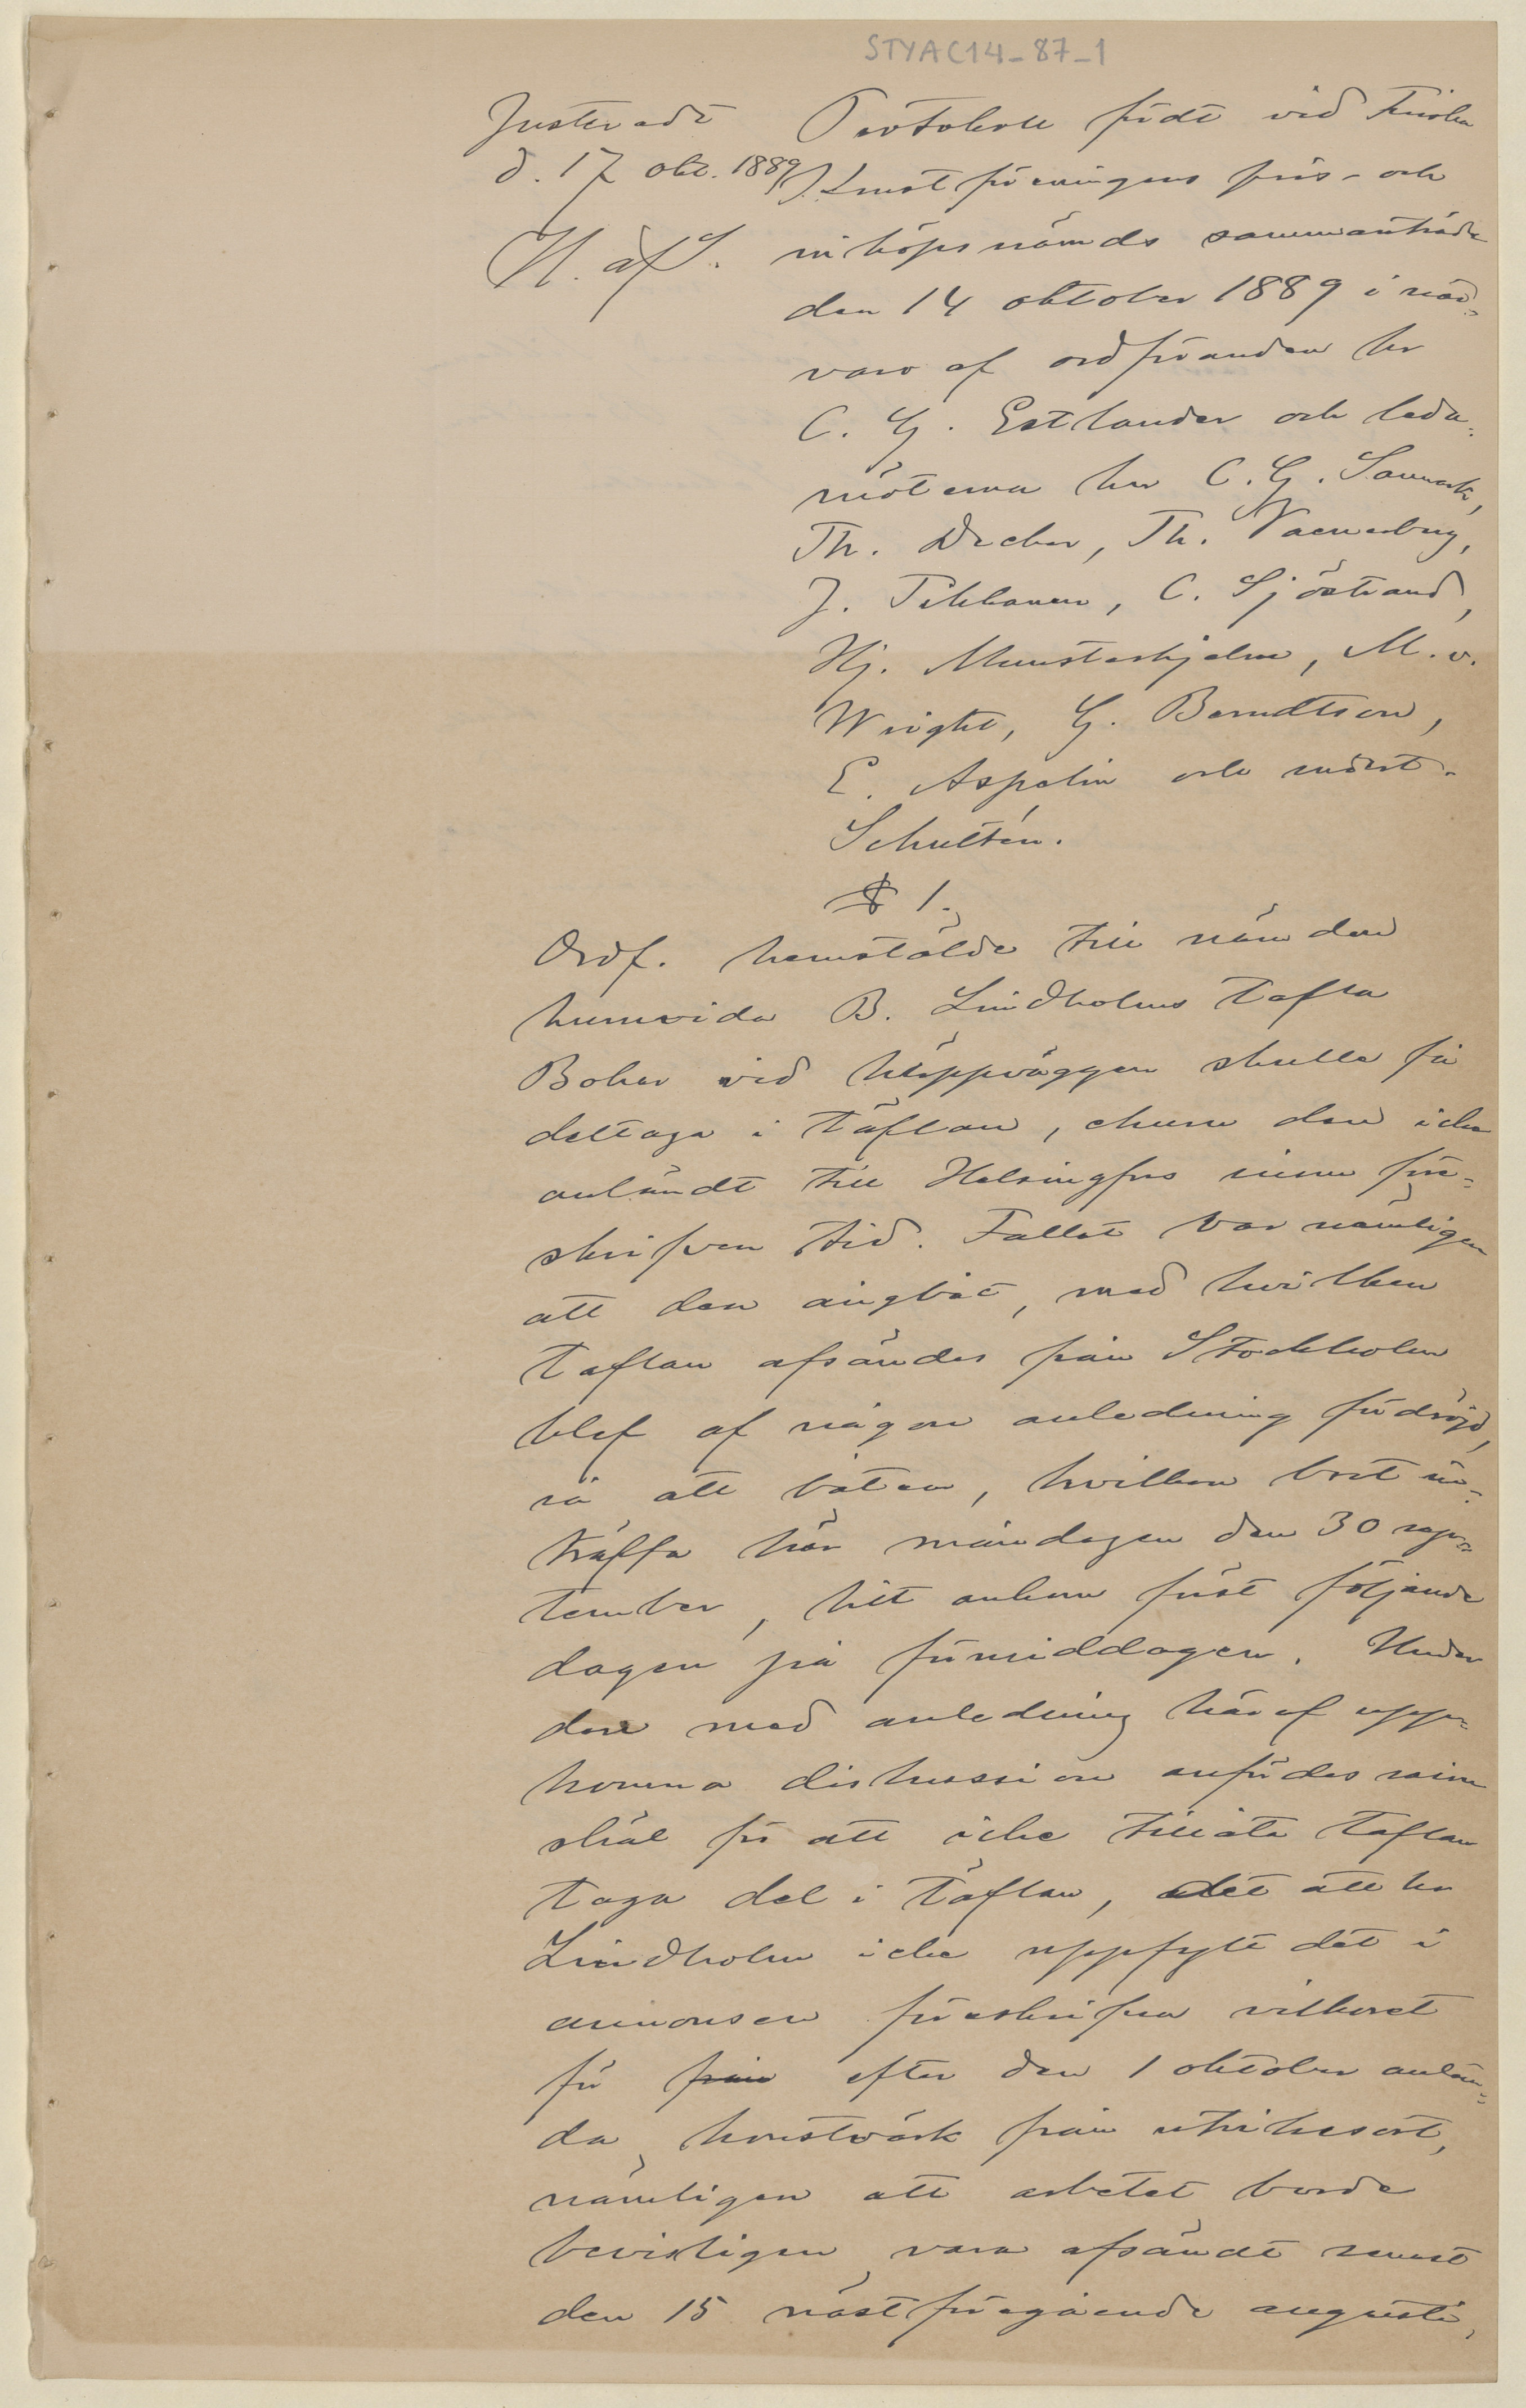 STYAC14-87-1
Justeradt
d. 17 okt. 1889.
H. af S.
Protokoll fördt vid Finska
Konstföreningens pris- och
inköpsnämds sammanträde
den 14 oktober 1889 i när-
varo af ordföranden hr
C. G. Estlander och leda-
möterna hrr C. G. Sanmark,
Th. Decker, Th. Waenerberg,
J. Tikkanen, C. Sjöstrand,
Hj. Munsterhjelm, M. v.
Wright, G. Berndtson,
E. Aspelin och undert.
Schultén.
§ 1.
Ordf. hemstälde till nämden
huruvida B. Lindholms tafla
Bohus vid klippväggen skulle få
deltaga i täflan, ehuru den icke
anländt till Helsingfors inom före-
skrifven tid. Fallet var nämligen
att den ångbåt, med hvilken
taflan afsändes från Stockholm
blef af någon anledning fördröjd,
så att båten, hvilken bort in-
träffa här måndagen den 30 sep-
tember, hit ankom först följande
dagen på förmiddagen. Under
den med anledning häraf upp-
komna diskussion anfördes såsom
skäl för att icke tillåta taflan
taga del i täflan, det att hr
Lindholm icke uppfylt det i
annonsen föreskrifna vilkoret
för från efter den 1 oktober anlän-
da konstvärk från utrikesort,
nämligen att arbetet borde
bevisligen vara afsändt senast
den 15 nästföregående augusti,